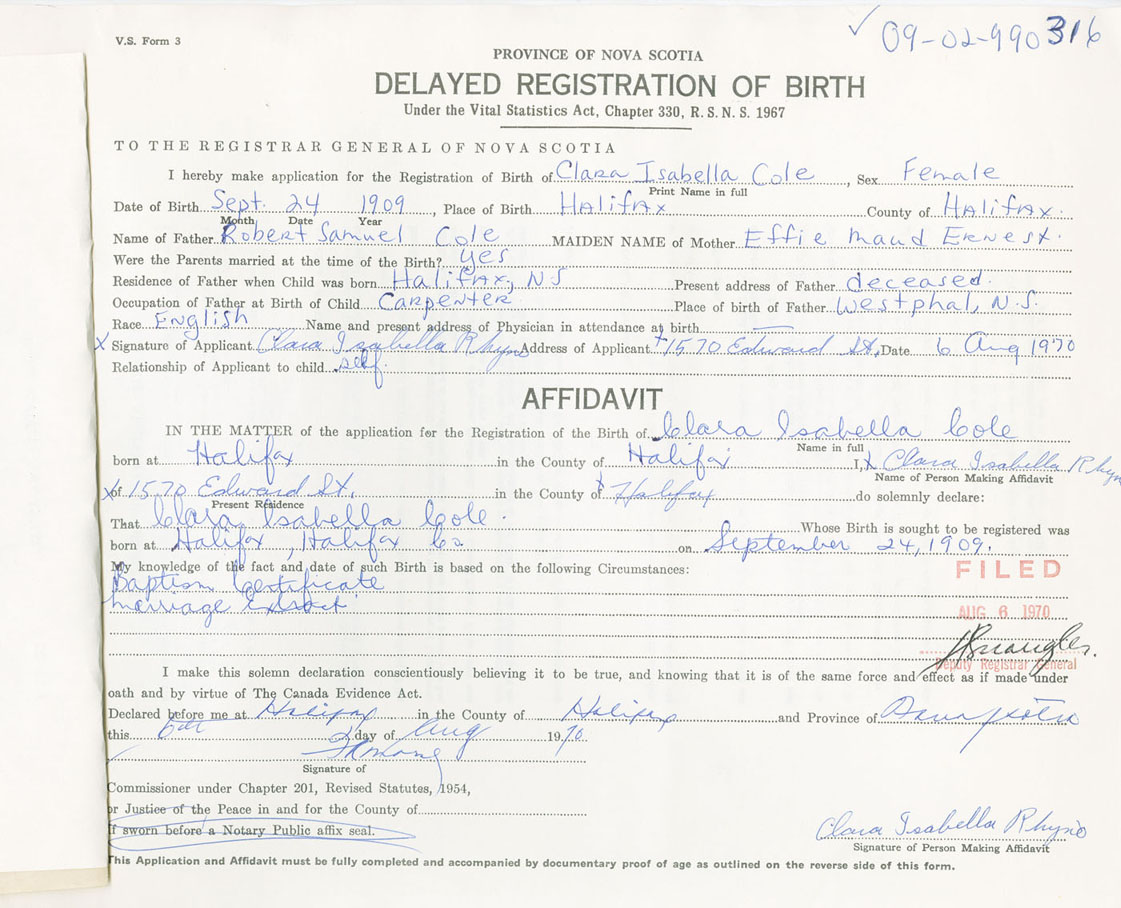 V.S. Form 3
✓ 09-02-990316
PROVINCE OF NOVA SCOTIA
DELAYED REGISTRATION OF BIRTH
Under the Vital Statistics Act, Chapter 330, R.S.N.S. 1967
TO THE REGISTRAR GENERAL OF NOVA SCOTIA
I hereby make application for the Registration of Birth of Clara Isabella Cole, Sex Female
Print Name in full
Date of Birth Sept. 24 1909, Place of Birth Halifax County of Halifax.
Month Date Year
Name of Father Robert Samuel Cole MAIDEN NAME of Mother Effie Maud Ernest.
Were the Parents married at the time of the Birth? yes
Residence of Father when Child was born Halifax, NS Present address of Father deceased.
Occupation of Father at Birth of Child Carpenter Place of birth of Father Westphal, N.S.
Race English Name and present address of Physician in attendance at birth —
x Signature of Applicant Clara Isabella Rhyno Address of Applicant x 1570 Edward St. Date 6 Aug 1970
Relationship of Applicant to child self.
AFFIDAVIT
IN THE MATTER of the application for the Registration of the Birth of Clara Isabella Cole
Name in full
born at Halifax in the County of Halifax I, x Clara Isabella Rhyno
Name of Person Making Affidavit
x of 1570 Edward St. in the County of x Halifax do solemnly declare:
Present Residence
That Clara Isabella Cole. Whose Birth is sought to be registered was
born at Halifax, Halifax Co on September 24, 1909.
My knowledge of the fact and date of such Birth is based on the following Circumstances:
Baptism Certificate
Marriage Extract
FILED
AUG 6 1970
Deputy Registrar General
I make this solemn declaration conscientiously believing it to be true, and knowing that it is of the same force and effect as if made under
oath and by virtue of The Canada Evidence Act.
Declared before me at Halifax in the County of Halifax and Province of Nova Scotia
this 6th day of Aug 1970
Signature of
Commissioner under Chapter 201, Revised Statutes, 1954,
or Justice of the Peace in and for the County of
If sworn before a Notary Public affix seal.
Clara Isabella Rhyno
Signature of Person Making Affidavit
This Application and Affidavit must be fully completed and accompanied by documentary proof of age as outlined on the reverse side of this form.